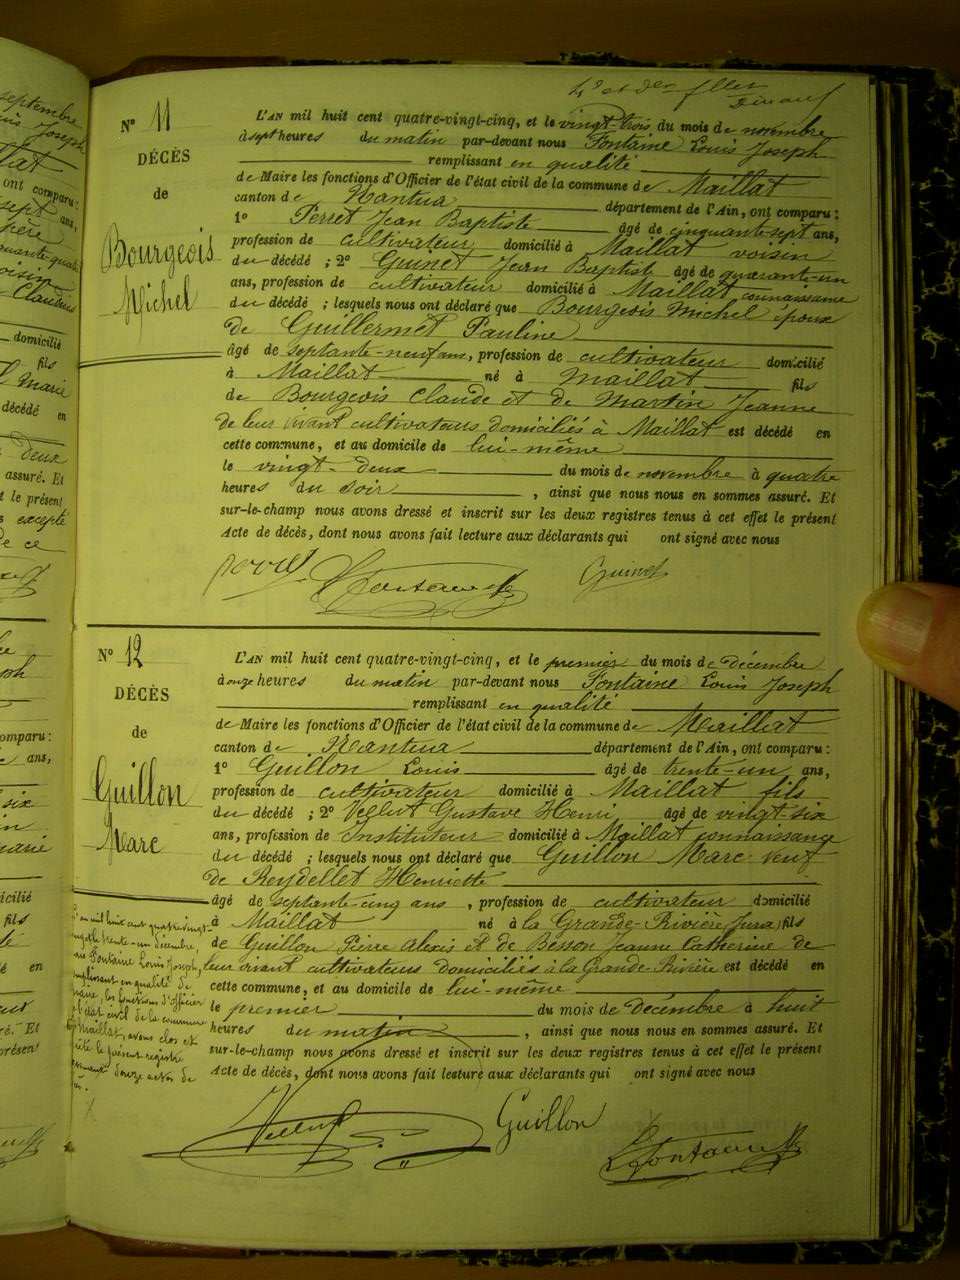 4e et der fllet
N° 11
DÉCÈS
de
Bourgeois
Michel
L'AN mil huit cent quatre-vingt-cinq, et le vingt-trois du mois de novembre
à sept heures du matin par-devant nous Fontaine Louis Joseph
remplissant en qualité
de Maire les fonctions d'Officier de l'état civil de la commune de Maillat
canton de Nantua département de l'Ain, ont comparu :
1° Perret Jean Baptiste âgé de cinquante-sept ans,
profession de cultivateur domicilié à Maillat voisin
du décédé ; 2° Guinet Jean Baptiste âgé de quarante-un
ans, profession de cultivateur domicilié à Maillat connaissance
du décédé ; lesquels nous ont déclaré que Bourgeois Michel époux
de Guillermet Pauline
âgé de septante-neuf ans, profession de cultivateur domicilié
à Maillat né à Maillat fils
de Bourgeois Claude et de Martin Jeanne
de leur vivant cultivateurs domiciliés à Maillat est décédé en
cette commune, et au domicile de lui-même
le vingt-deux du mois de novembre à quatre
heures du soir , ainsi que nous nous en sommes assuré. Et
sur-le-champ nous avons dressé et inscrit sur les deux registres tenus à cet effet le présent
Acte de décès, dont nous avons fait lecture aux déclarants qui ont signé avec nous
Perret Fontaine Guinet
N° 12
DÉCÈS
de
Guillon
Marc
L'AN mil huit cent quatre-vingt-cinq, et le premier du mois de décembre
à onze heures du matin par-devant nous Fontaine Louis Joseph
remplissant en qualité
de Maire les fonctions d'Officier de l'état civil de la commune de Maillat
canton de Nantua département de l'Ain, ont comparu :
1° Guillon Louis âgé de trente-un ans,
profession de cultivateur domicilié à Maillat fils
du décédé ; 2° Vellut Gustave Henri âgé de vingt-six
ans, profession de Instituteur domicilié à Maillat connaissance
du décédé ; lesquels nous ont déclaré que Guillon Marc veuf
de Reydellet Henriette
âgé de septante-cinq ans , profession de cultivateur domicilié
à Maillat né à la Grande-Rivière (Jura) fils
de Guillon Pierre Alexis et de Besson Jeanne Catherine de
leur vivant cultivateurs domiciliés à la Grande-Rivière est décédé en
cette commune, et au domicile de lui-même
le premier du mois de décembre à huit
heures du matin , ainsi que nous nous en sommes assuré. Et
sur-le-champ nous avons dressé et inscrit sur les deux registres tenus à cet effet le présent
Acte de décès, dont nous avons fait lecture aux déclarants qui ont signé avec nous
L'an mil huit cent quatre-vingt-
cinq et le trente-un décembre,
nous Fontaine Louis Joseph,
remplissant en qualité de
maire, les fonctions d'officier
de l'état civil de la commune
de Maillat, avons clos et
arrêté le présent registre
contenant douze actes de
décès.
Vellut Guillon
L Fontaine